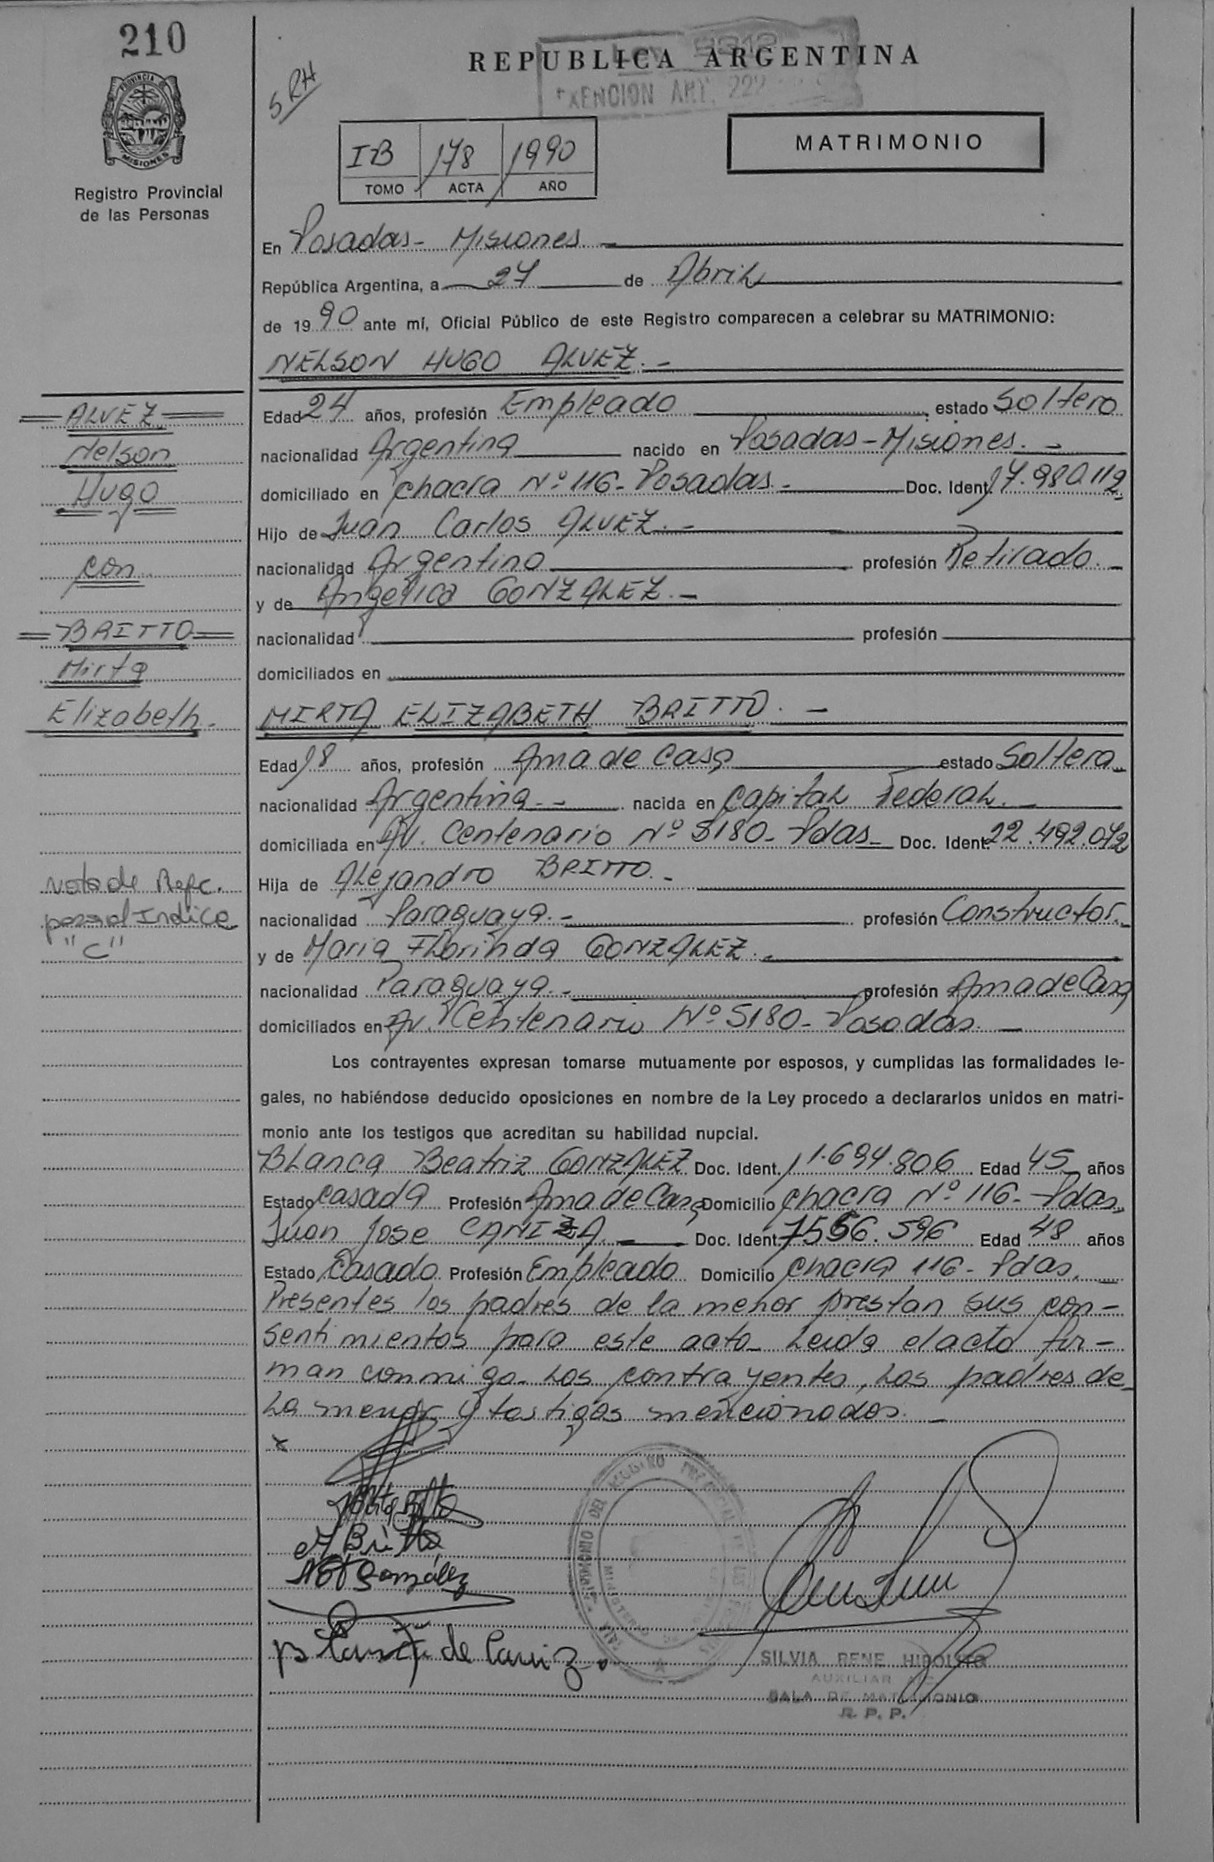 210
PROVINCIA DE MISIONES
Registro Provincial
de las Personas
SRH
REPUBLICA ARGENTINA
EXENCION ART. 222
MATRIMONIO
IB 178 1990
TOMO ACTA AÑO
En Posadas - Misiones
República Argentina, a 27 de Abril
de 1990 ante mí, Oficial Público de este Registro comparecen a celebrar su MATRIMONIO:
NELSON HUGO ALVEZ. -
ALVEZ
Nelson
Hugo
con
BRITTO
Mirta
Elizabeth.
Edad 24 años, profesión Empleado estado Soltero
nacionalidad Argentina nacido en Posadas - Misiones. -
domiciliado en Chacra Nº 116 - Posadas. - Doc. Ident. 17.980.119
Hijo de Juan Carlos ALVEZ. -
nacionalidad Argentino profesión Retirado. -
y de Angelica GONZALEZ. -
nacionalidad profesión
domiciliados en
MIRTA ELIZABETH BRITTO. -
Edad 18 años, profesión Ama de Casa estado Soltera
nacionalidad Argentina. - nacida en Capital Federal. -
domiciliada en Av. Centenario Nº 5180 - Pdas - Doc. Ident. 22.492.072
Hija de Alejandro BRITTO. -
nacionalidad Paraguaya. - profesión Constructor. -
y de Maria Florinda GONZALEZ. -
nacionalidad Paraguaya. - profesión Ama de Casa
domiciliados en Av. Centenario Nº 5180 - Posadas. -
Nota de Refc.
para el Indice
"C"
Los contrayentes expresan tomarse mutuamente por esposos, y cumplidas las formalidades le-
gales, no habiéndose deducido oposiciones en nombre de la Ley procedo a declararlos unidos en matri-
monio ante los testigos que acreditan su habilidad nupcial.
Blanca Beatriz GONZALEZ Doc. Ident. 11.694.806 Edad 45 años
Estado Casada Profesión Ama de Casa Domicilio Chacra Nº 116 - Pdas.
Juan Jose CANIZA. Doc. Ident. 7556.596 Edad 48 años
Estado Casado Profesión Empleado Domicilio Chacra 116 - Pdas. -
Presentes los padres de la menor prestan sus con-
sentimientos para este acto - Leida el acta fir-
man conmigo - Los contrayentes, Los padres de
La menor y testigos mencionados. -
x
Mirta Britto
A Britto
M F Gonzalez
B Gonz de Caniz
SILVIA RENE HIPOLITO
AUXILIAR
SALA DE MATRIMONIO
R. P. P.